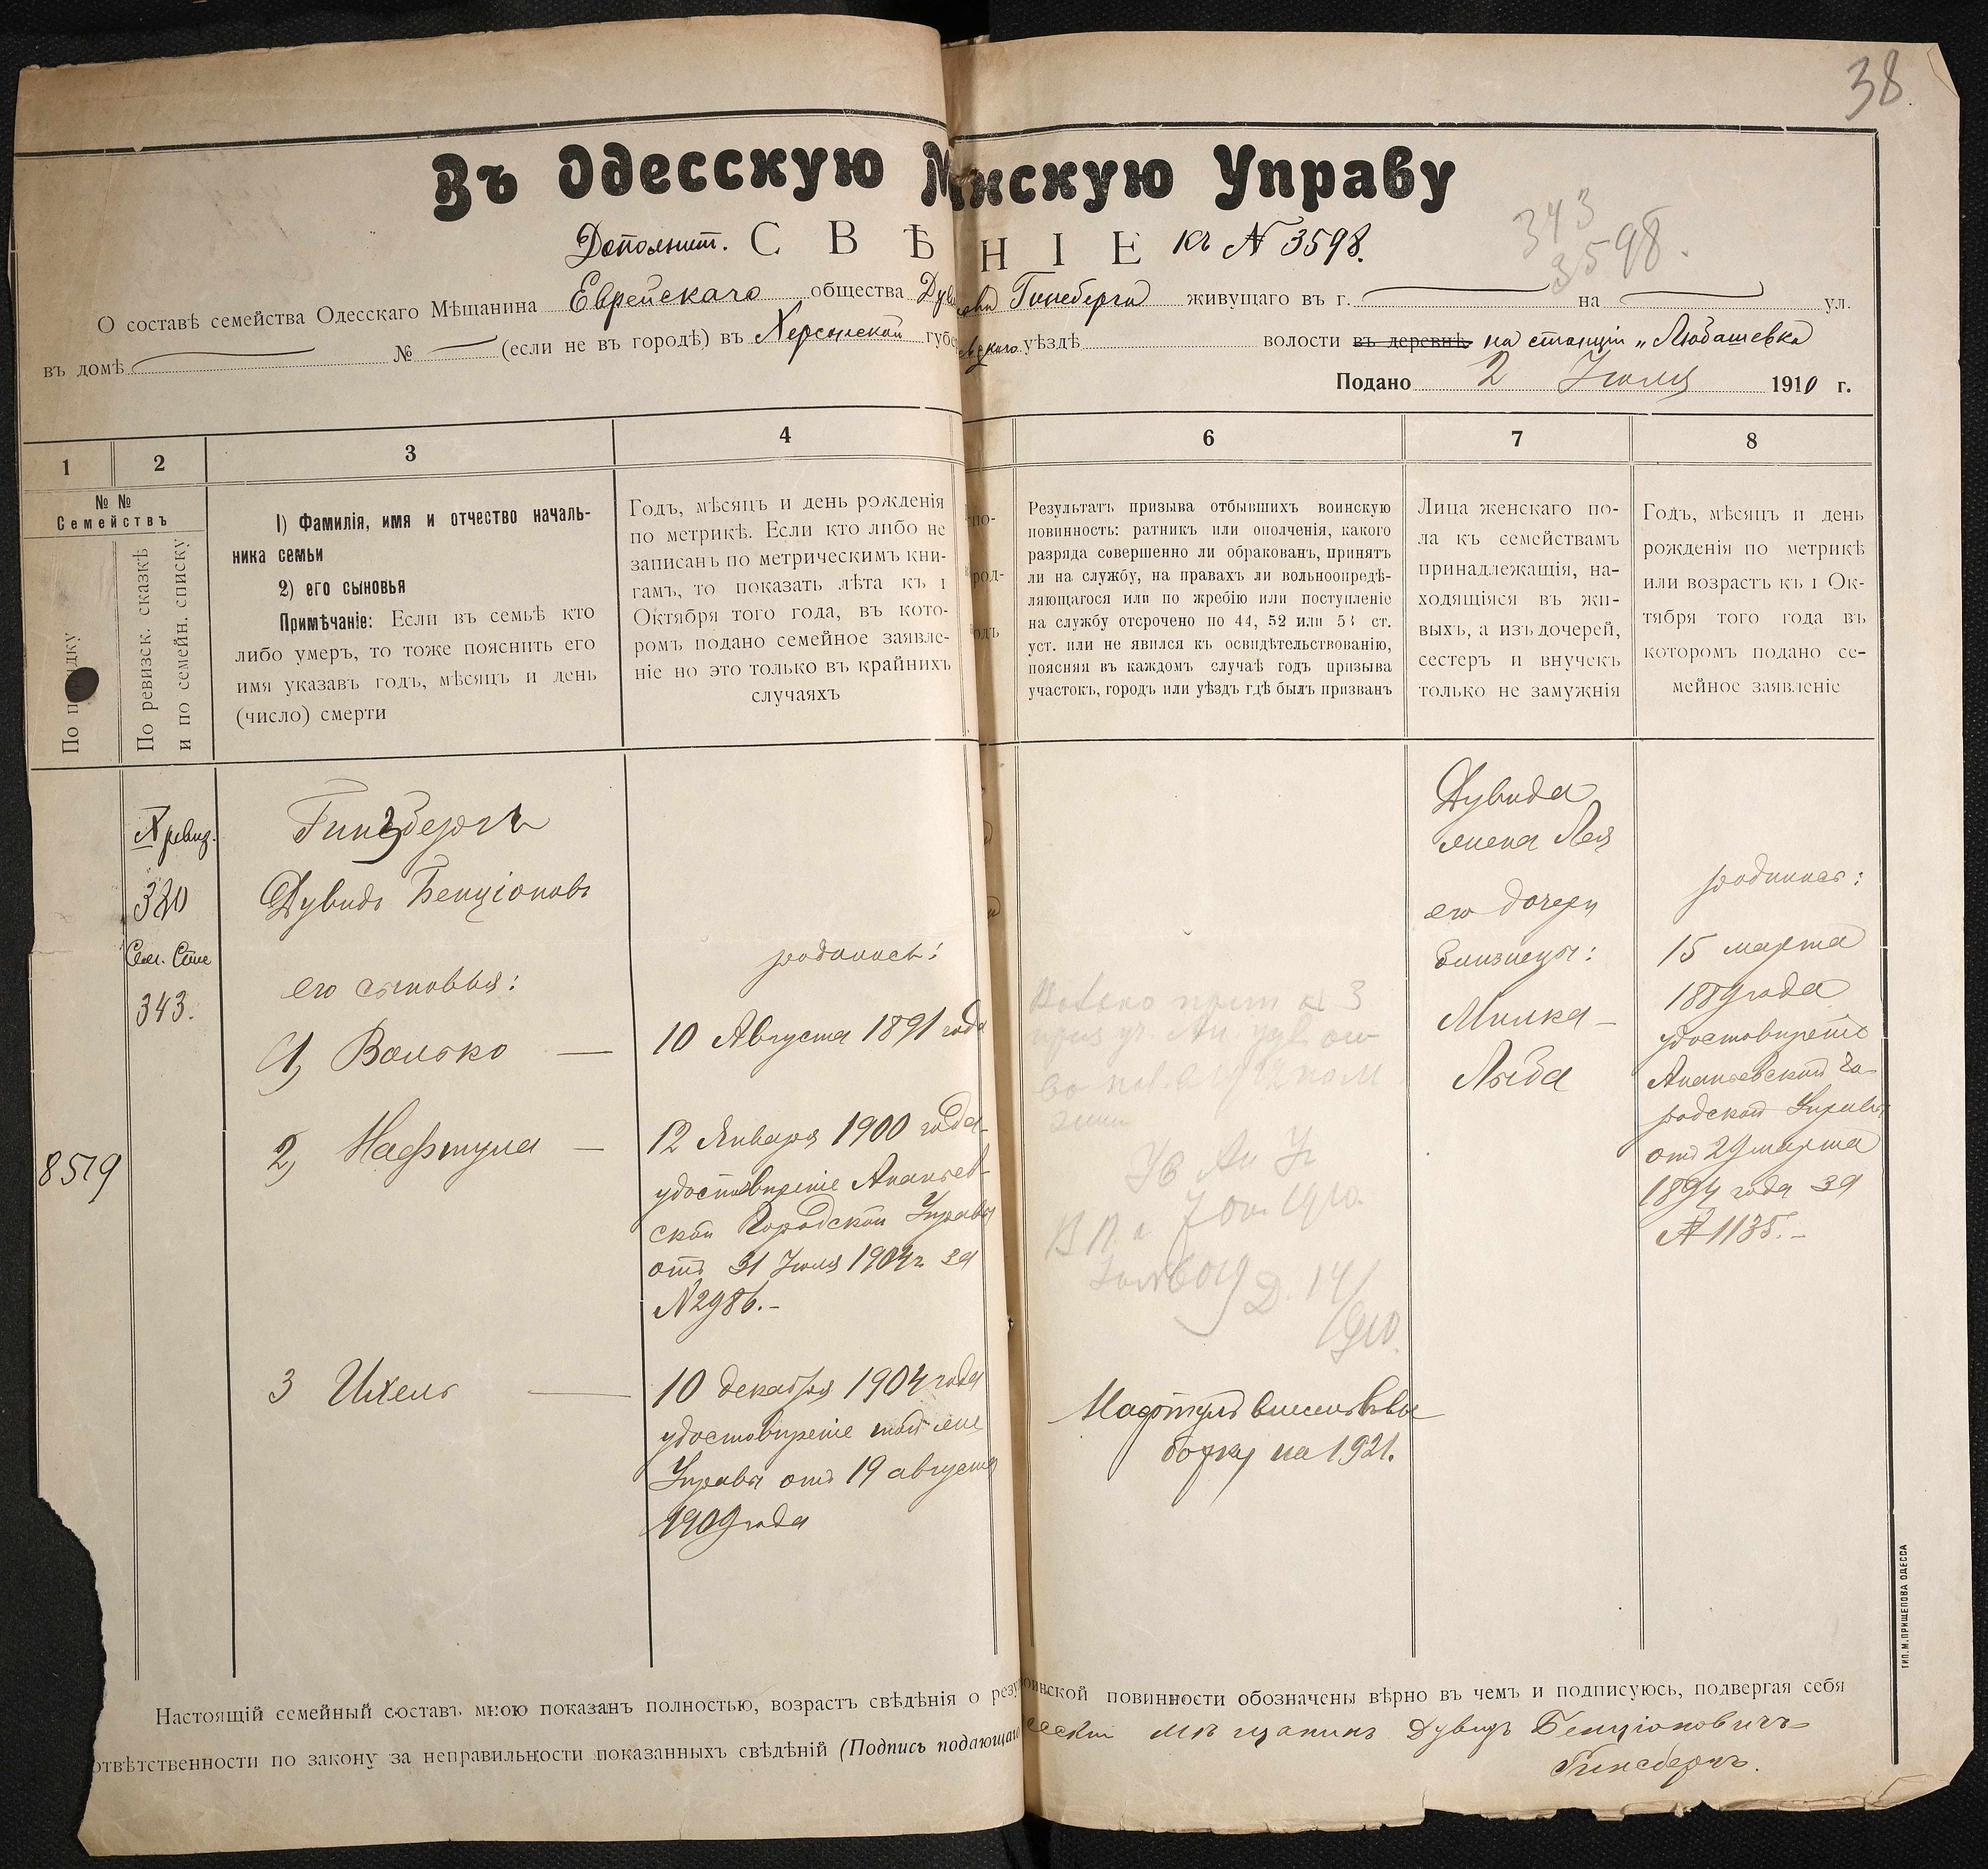 38.
Въ Одесскую М нскую Управу
343
3598.
Дополнит. С В Ѣ Н І Е къ № 3598.
О составѣ семейства Одесскаго Мѣщанина Еврейскаго общества Гинсберга живущаго въ г. на ул.
въ домѣ № (если не въ городѣ) въ Херсонской губе уѣздѣ волости въ деревнѣ на станціи „Любашевка
Подано 2 Іюля 1910 г.
1 2 3 4 6 7 8
№ №
Семействъ
По ревизск. сказкѣ
и по семейн. списку
1) Фамилія, имя и отчество началь-
ника семьи
2) его сыновья
Примѣчаніе: Если въ семьѣ кто
либо умеръ, то тоже пояснить его
имя указавъ годъ, мѣсяцъ и день
(число) смерти
Годъ, мѣсяцъ и день рожденія
по метрикѣ. Если кто либо не
записанъ по метрическимъ кни-
гамъ, то показать лѣта къ 1
Октября того года, въ кото-
ромъ подано семейное заявле-
ніе но это только въ крайнихъ
случаяхъ
Результатъ призыва отбывшихъ воинскую
повинность: ратникъ или ополченія, какого
разряда совершенно ли обракованъ, принятъ
ли на службу, на правахъ ли вольноопредѣ-
ляющагося или по жребію или поступленіе
на службу отсрочено по 44, 52 или 53 ст.
уст. или не явился къ освидѣтельствованію,
поясняя въ каждомъ случаѣ годъ призыва
участокъ, городъ или уѣздъ гдѣ былъ призванъ
Лица женскаго по-
ла къ семействамъ
принадлежащія, на-
ходящіяся въ жи-
выхъ, а изъ дочерей,
сестеръ и внучекъ
только не замужнія
Годъ, мѣсяцъ и день
рожденія по метрикѣ
или возрастъ къ 1 Ок-
тября того года въ
которомъ подано се-
мейное заявленіе
8519
№ ревиз.
320
343.
Гинзбергъ
Дувидъ Бенціоновъ
его сыновья:
1) Волько —
2) Нафтула —
3 Ихель —
родились:
10 Августа 1891 года
12 Января 1900 года
удостовѣреніе Ананьев-
ской Городской Управы
отъ 31 Іюля 1904 г. за
№ 2986.-
10 декабря 1904 года
удостовѣреніе той же
Управы отъ 19 августа
1909 года
Нафтулъ
на 1921.
Дувида
жена Лея
его дочери
близнецы:
Милка —
Люба
родились:
15 марта
1889 года
удостовѣреніе
Ананьевской Го-
родской Управы
отъ 29 марта
1894 года за
№ 1135.-
Настоящій семейный составъ мною показанъ полностью, возрастъ свѣдѣнія о резу воинской повинности обозначены вѣрно въ чемъ и подписуюсь, подвергая себя
отвѣтственности по закону за неправильности показанныхъ свѣдѣній (Подпись подающаго мѣщанинъ Дувидъ Бенціоновичъ
Гинсбергъ.
ТИП. М. ПРИЩЕПОВА ОДЕССА